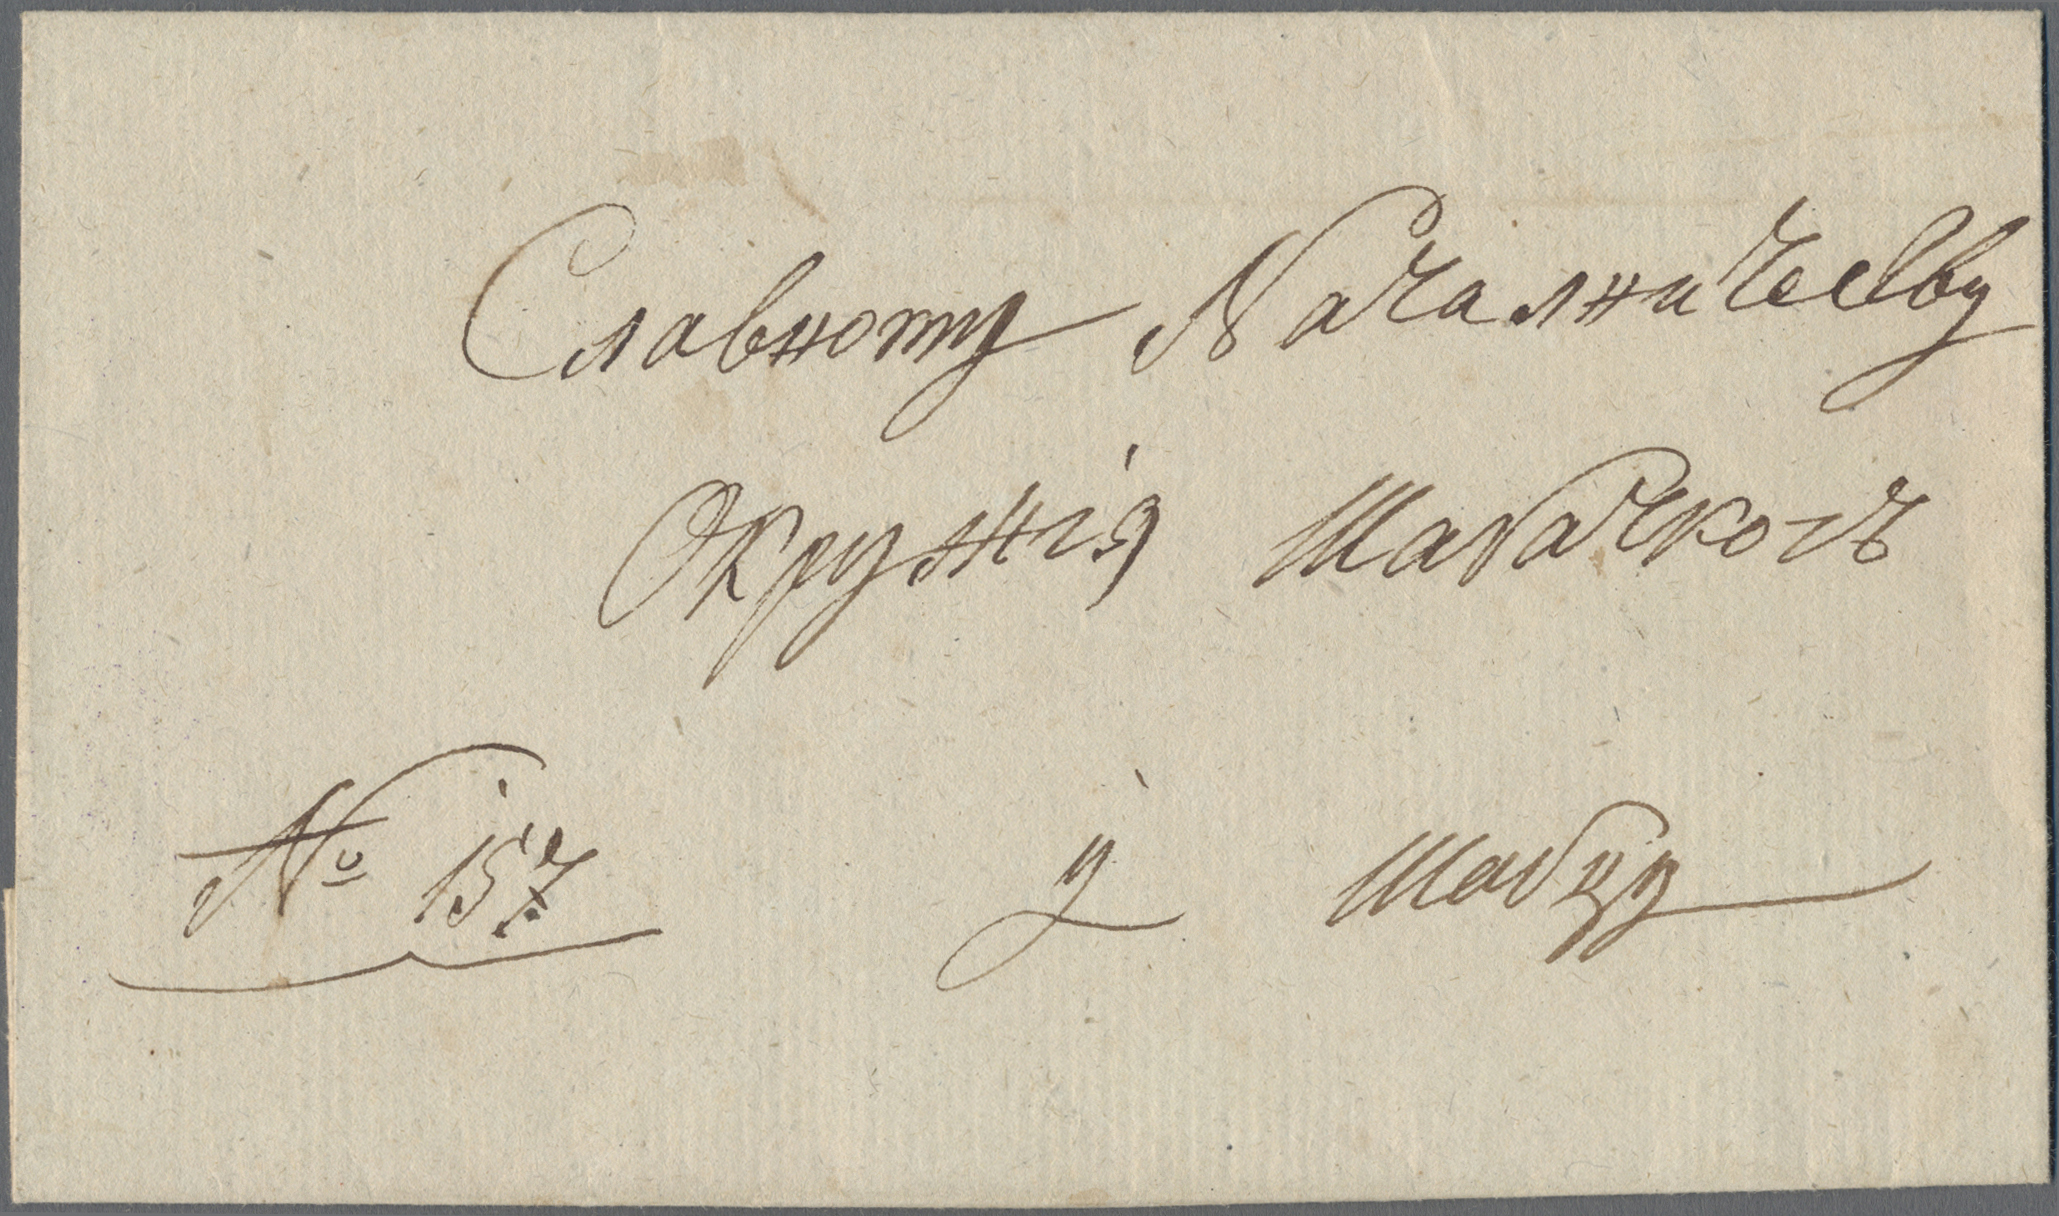 Славному Началничеству
Окружія Шабачкогъ
№ 157. у Шабцу